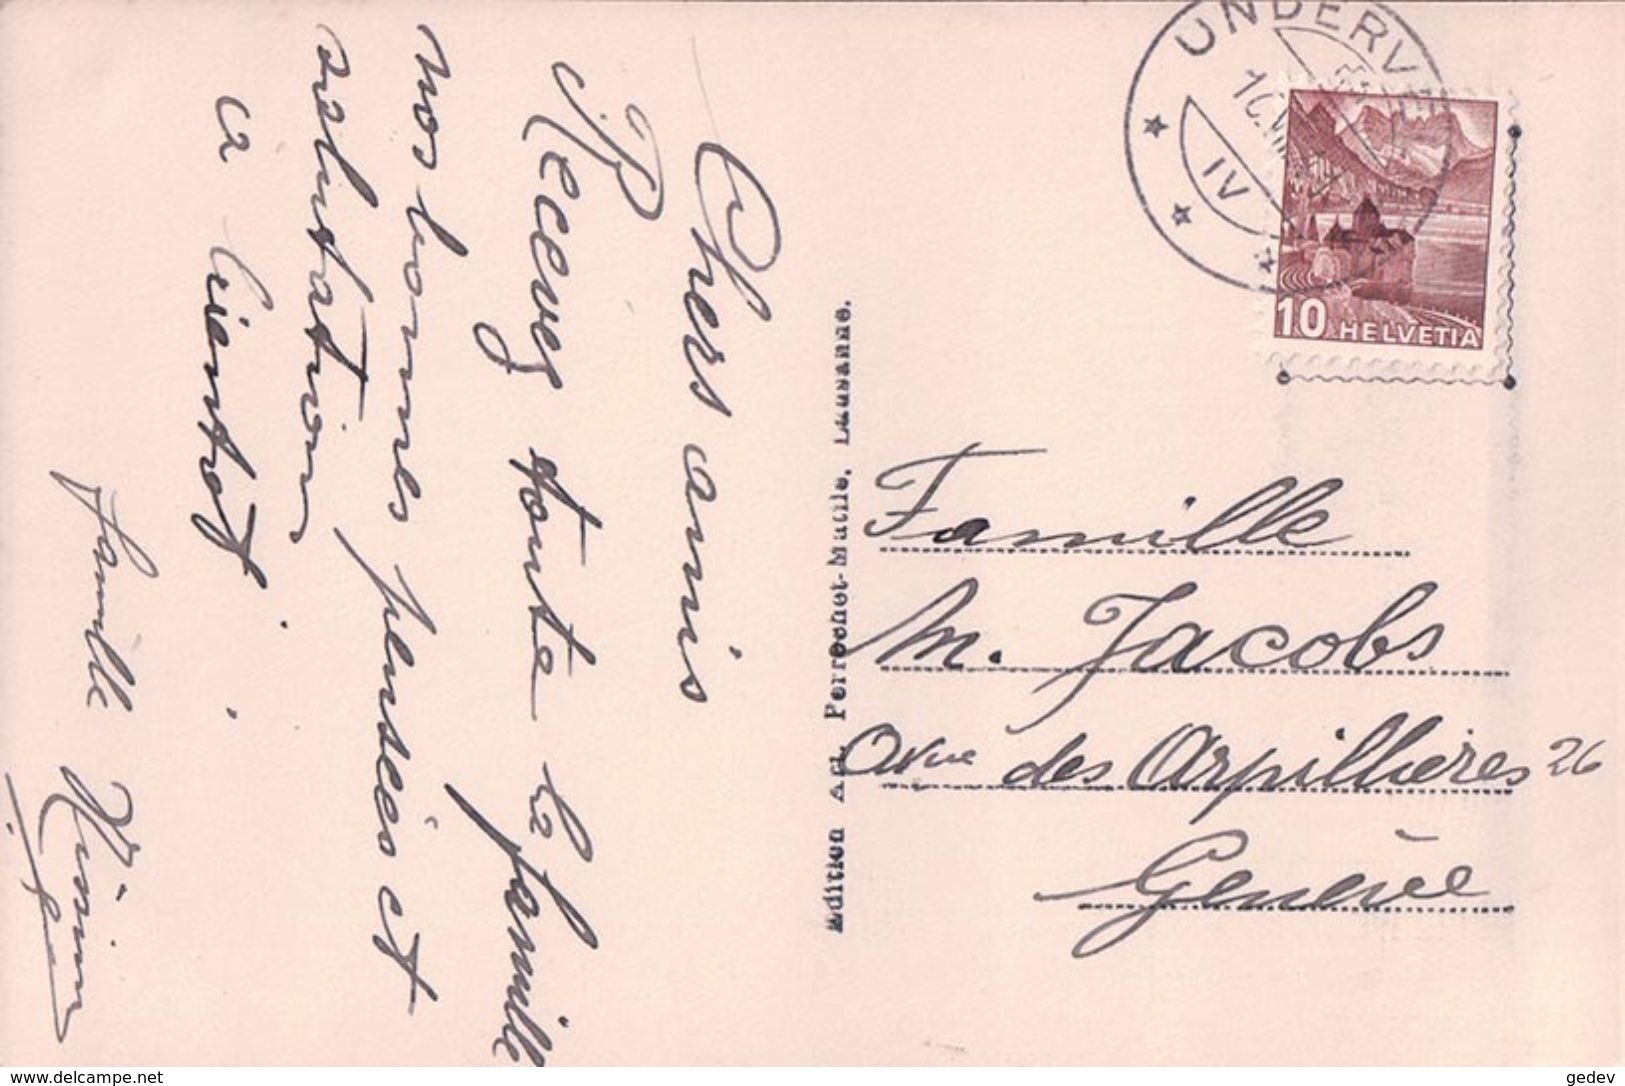 Chers amis
Recevez toute la famille
nos bonnes pensées et
salutation
a bientot
famille
Edition Art. Perrochet-Matile. Lausanne.
UNDERV
IV
10 HELVETIA
Famille
M. Jacobs
Avue des Arpillières 26
Genève
www.delcampe.net
gedev